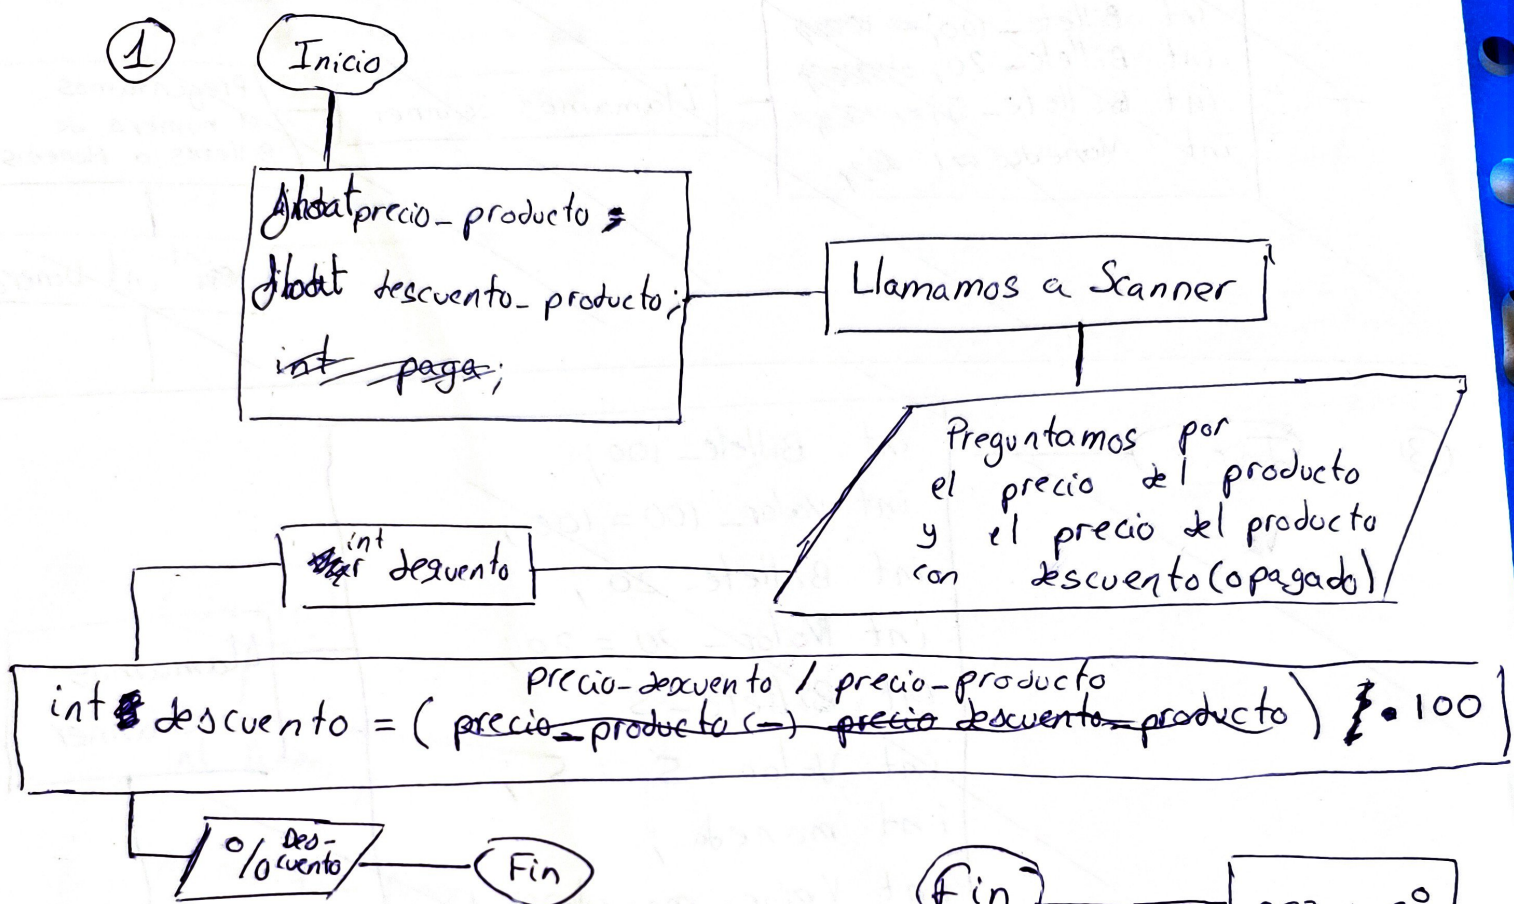 1
Inicio
float precio_producto;
float descuento_producto;
int paga;
Llamamos a Scanner
Preguntamos por
el precio del producto
y el precio del producto
con descuento (o pagado)
int descuento
precio-descuento / precio-producto
int descuento = ( precio_producto (-) precio descuento_producto ) . 100
% Des-
cuento
Fin
Fin